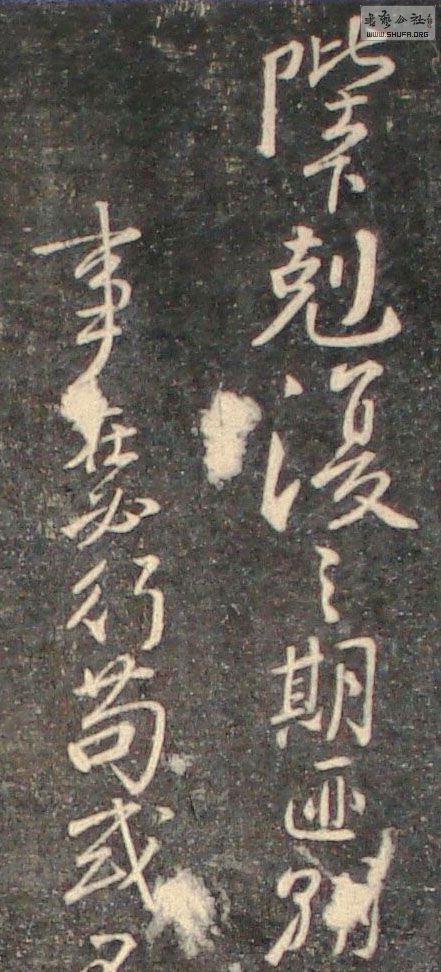 書藝公社
WWW.SHUFA.ORG
陛下剋復之期匪
事在必行苟或